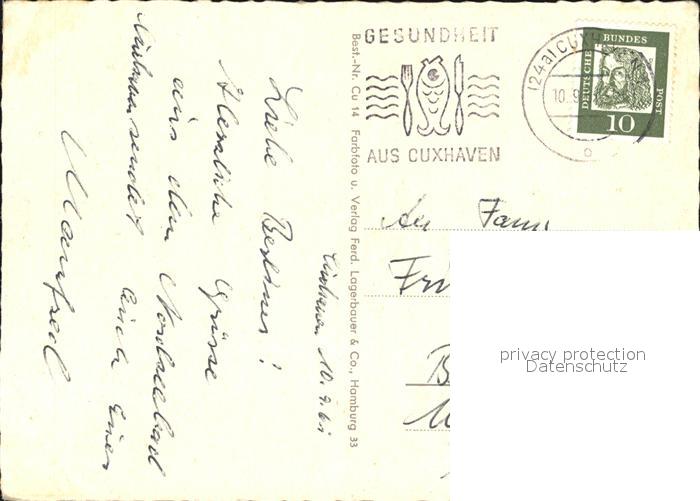 GESUNDHEIT
AUS CUXHAVEN
(24a) CUXH
10.9
DEUTSCHE BUNDES POST
10
Best.-Nr. Cu 14 Farbfoto u. Verlag Ferd. Lagerbauer & Co., Hamburg 33
Cuxhaven 10.9.61
Liebe Berliner!
Herzliche Grüsse
aus dem Nordseebad
Cuxhaven sendet Euch Euer
Manfred
An Fam
privacy protection
Datenschutz